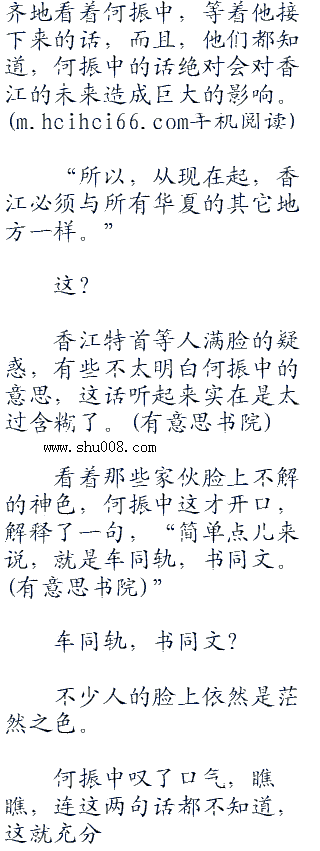 齐地看着何振中，等着他接
下来的话，而且，他们都知
道，何振中的话绝对会对香
江的未来造成巨大的影响。
(m.hcihci66.com手机阅读)
“所以，从现在起，香
江必须与所有华夏的其它地
方一样。”
这？
香江特首等人满脸的疑
惑，有些不太明白何振中的
意思，这话听起来实在是太
过含糊了。(有意思书院)
www.shu008.com
看着那些家伙脸上不解
的神色，何振中这才开口，
解释了一句，“简单点儿来
说，就是车同轨，书同文。
(有意思书院)”
车同轨，书同文？
不少人的脸上依然是茫
然之色。
何振中叹了口气，瞧
瞧，连这两句话都不知道，
这就充分